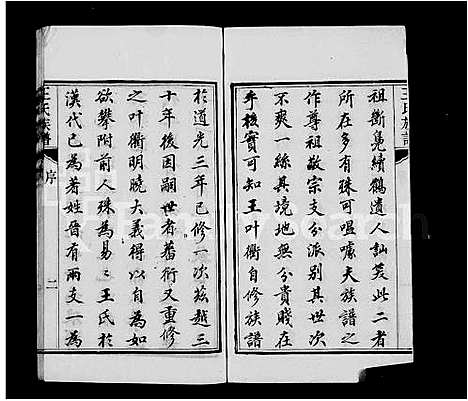 王氏族譜
祖斷鳧續鶴遺人訕笑此二者
所在多有殊可嗢噱夫族譜之
作尊祖敬宗支分派別其世次
不爽一絲其境地無分貴賤在
乎核實可知王叶衢自修族譜
於道光三年已修一次茲越三
十年後因嗣世者蕃衍又重修
之叶衢明曉大義得以自為如
欲攀附前人殊為易易王氏於
漢代已為著姓晉有兩支一為
王氏族譜
序
二